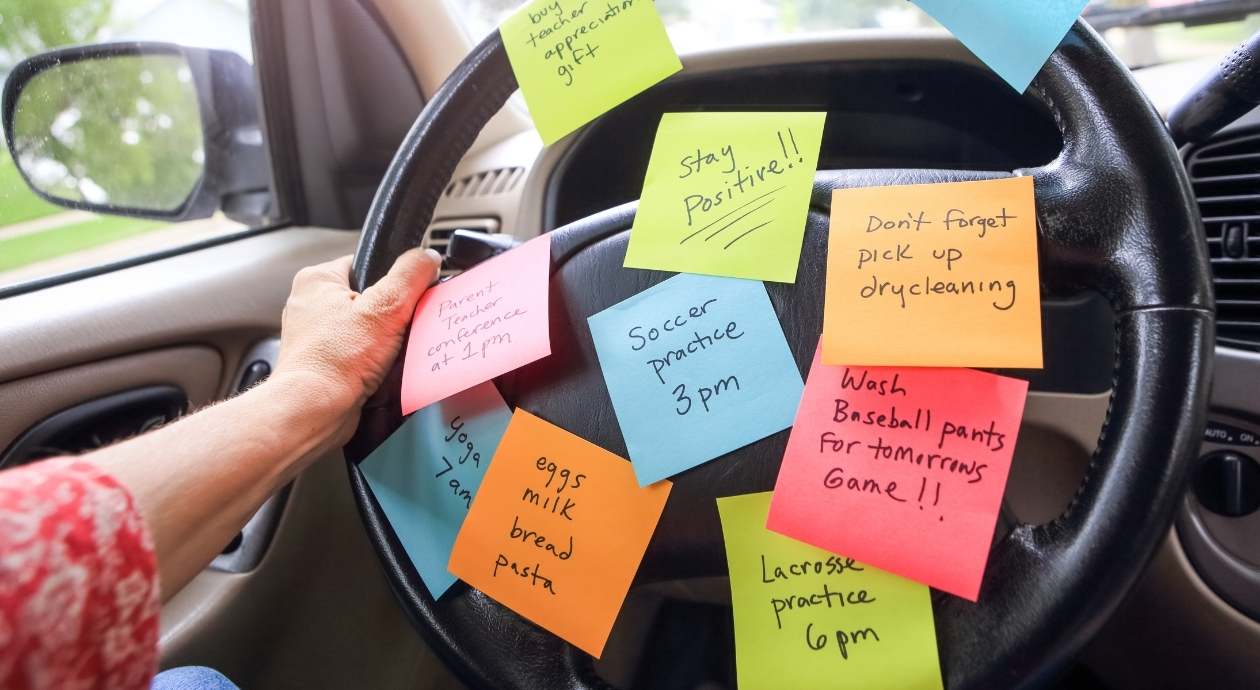 buy
teacher
appreciation
gift
Stay
Positive!!
Don't forget
pick up
drycleaning
Parent
Teacher
conference
at 1pm
Soccer
practice
3pm
Wash
Baseball pants
For tomorrows
Game!!
Yoga
7am
eggs
milk
bread
pasta
Lacrosse
practice
6pm
AUTO ON